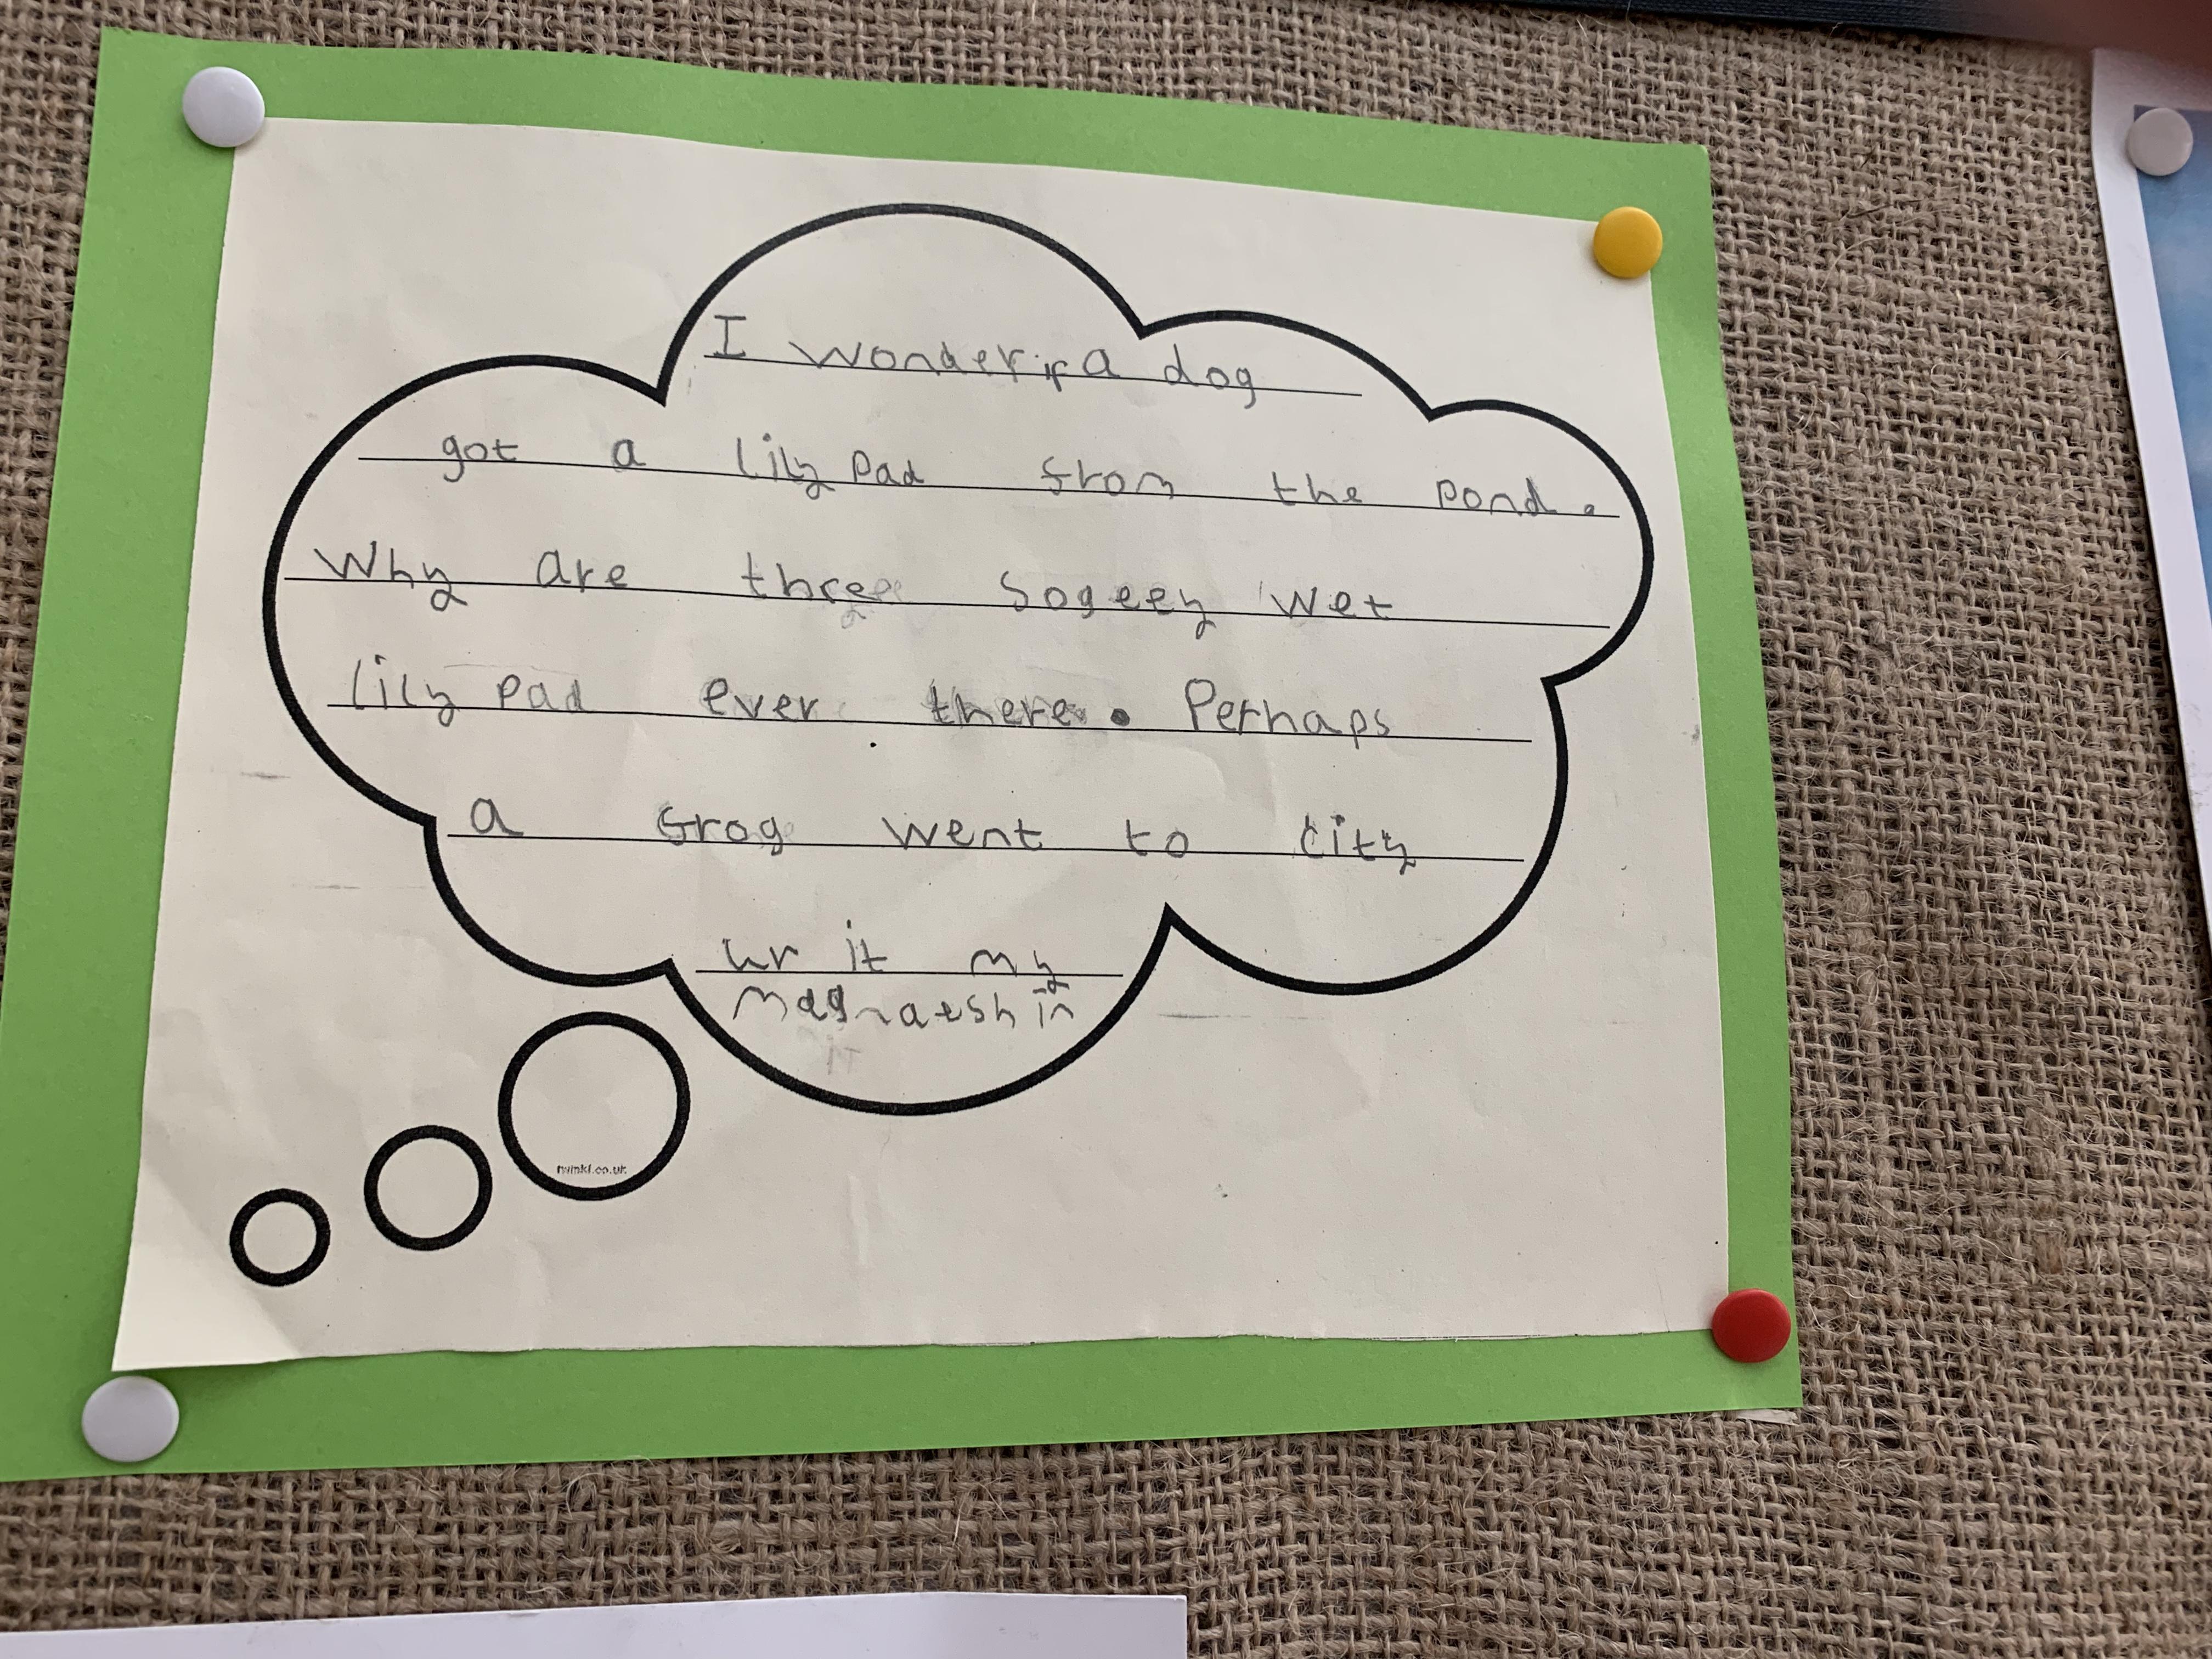 I wonder if a dog
got a lily pad from the pond.
Why are three sogeey wet
lily pad ever there. Perhaps
a frog went to city
ur it my
magnaeshin
it
twinkl.co.uk